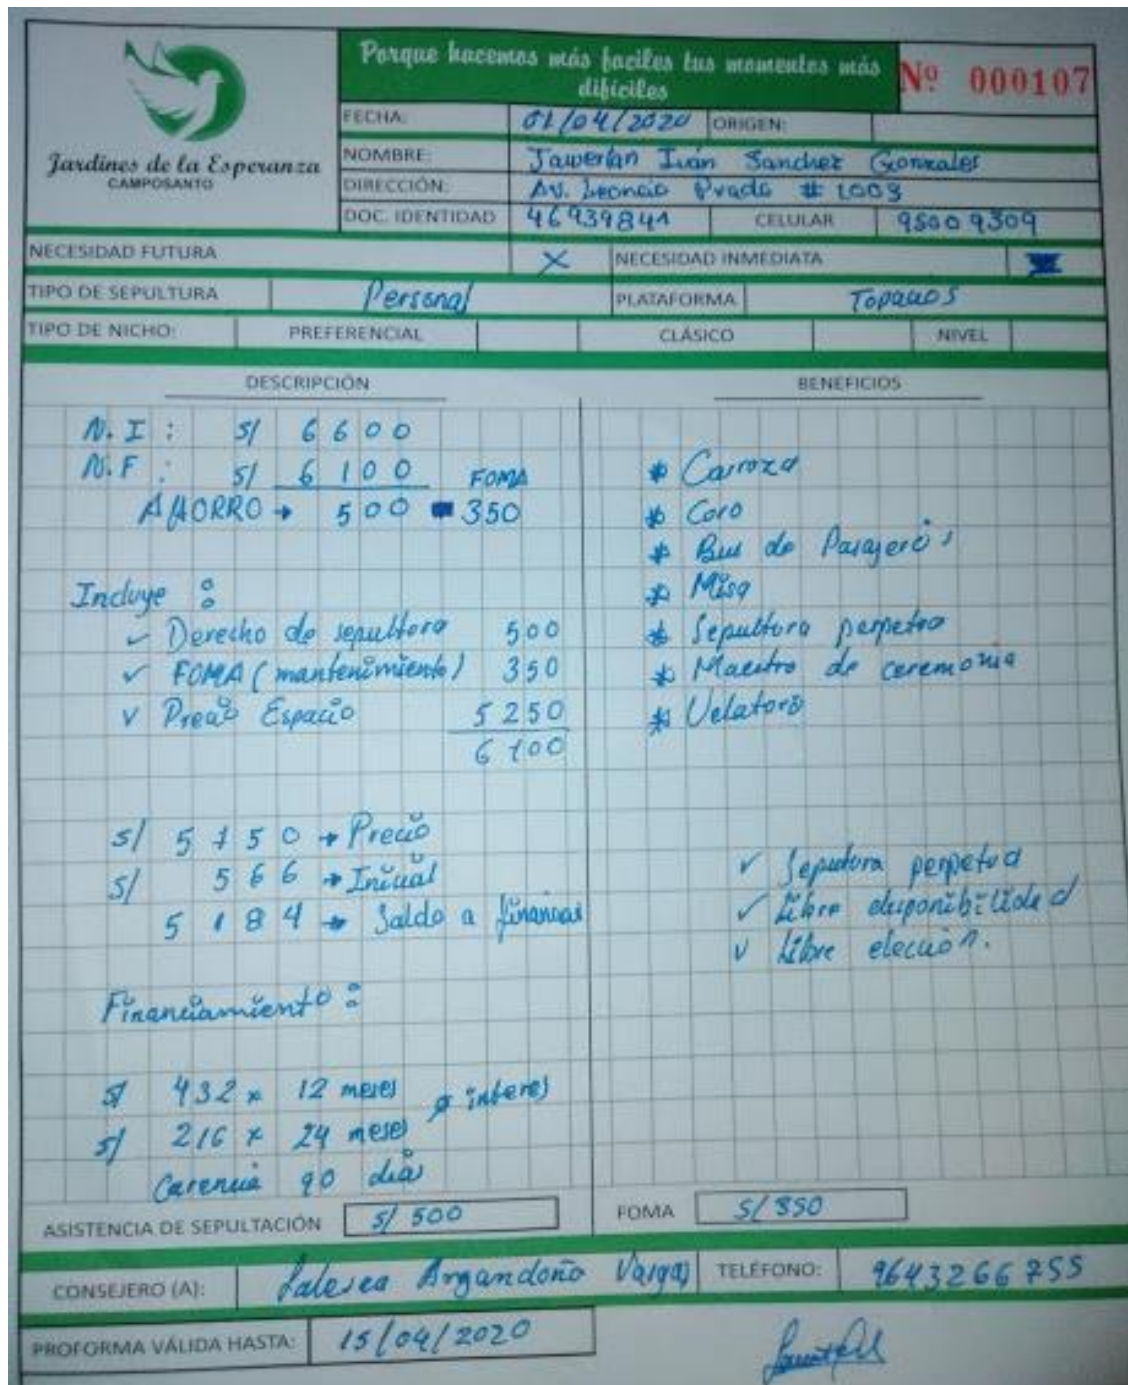 Porque hacemos más faciles tus momentos más difíciles
Nº 000107
Jardines de la Esperanza
CAMPOSANTO
FECHA: 01/04/2020 ORIGEN:
NOMBRE: Jawerlan Iván Sanchez Gonzales
DIRECCIÓN: Av. Leoncio Prado # 1003
DOC. IDENTIDAD 46939841 CELULAR 95009309
NECESIDAD FUTURA X NECESIDAD INMEDIATA
TIPO DE SEPULTURA Personal PLATAFORMA Topacios
TIPO DE NICHO: PREFERENCIAL CLÁSICO NIVEL
DESCRIPCIÓN
N.I : S/ 6600
N.F : S/ 6100 FOMA
AHORRO → 500 350
Incluye :
✓ Derecho de sepultura 500
✓ FOMA (mantenimiento) 350
✓ Precio Espacio 5250
6100
S/ 5750 → Precio
S/ 566 → Inicial
5184 → Saldo a financiar
Financiamiento :
S/ 432 x 12 meses
ø interes
S/ 216 x 24 meses
Carencia 90 dias
BENEFICIOS
* Carroza
* Coro
* Bus de Pasajeros
* Misa
* Sepultura perpetua
* Maestro de ceremonia
* Velatorio
✓ Sepultura perpetua
✓ Libre disponibilidad
✓ Libre elección.
ASISTENCIA DE SEPULTACIÓN S/ 500 FOMA S/ 350
CONSEJERO (A): Argandoño Vargas TELÉFONO: 9643266755
PROFORMA VÁLIDA HASTA: 15/04/2020